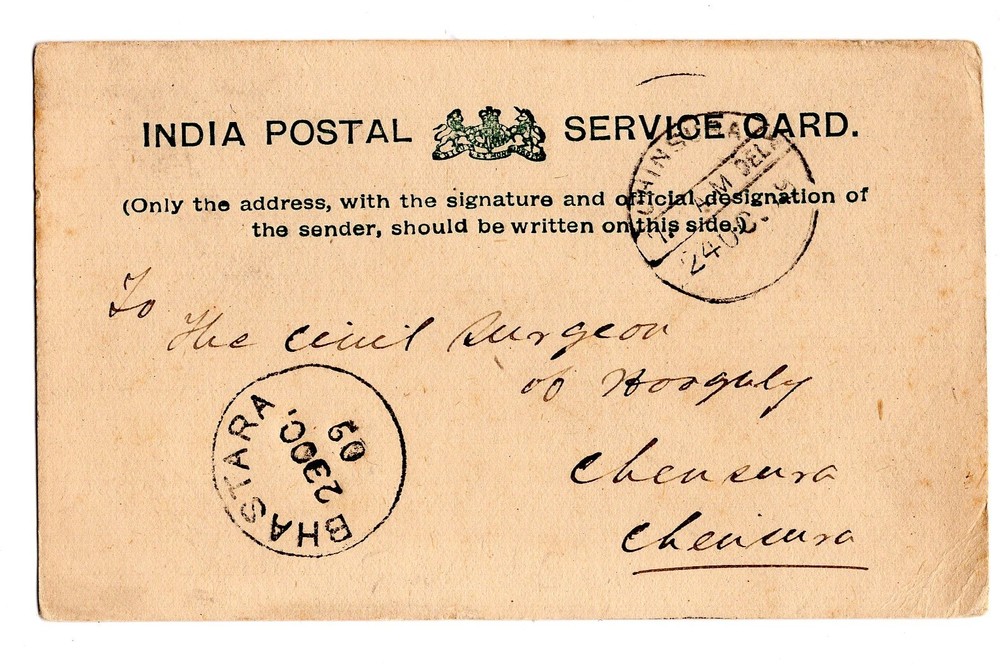 INDIA POSTAL SERVICE CARD.
(Only the address, with the signature and official designation of
the sender, should be written on this side.)
CHINSURA
A.M DELY
24 OC. 09
To
The Civil Surgeon
of Hooghly
Chensura
Chensura
BHASTARA
23 OC.
09